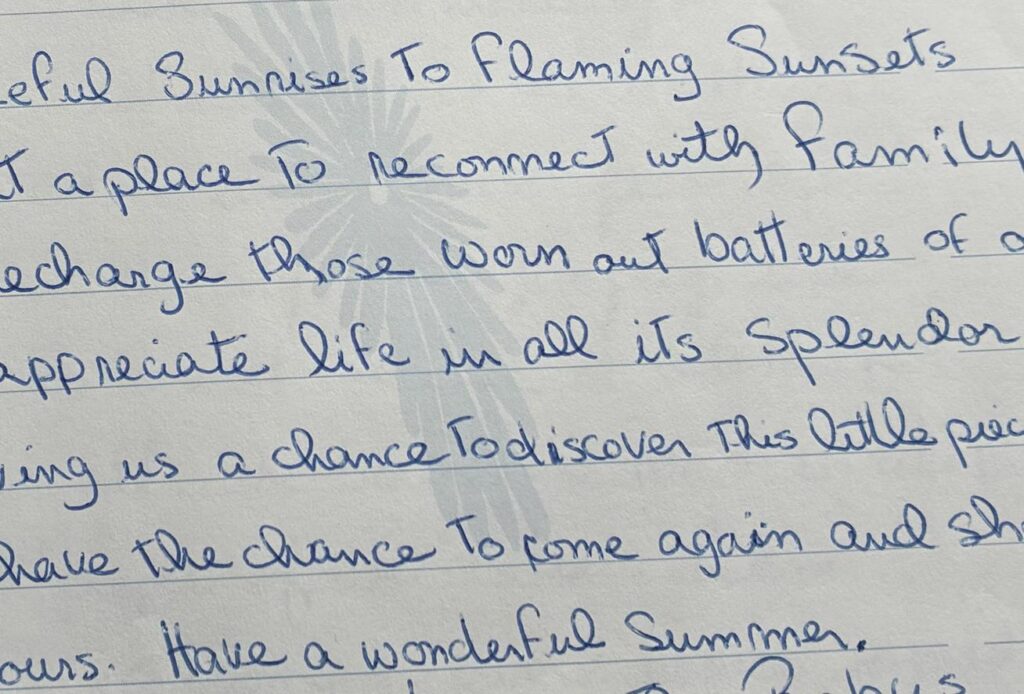 eful Sunrises To Flaming Sunsets
a place To reconnect with family
echarge those worn out batteries of
appreciate life in all its Splendor
ing us a chance To discover This little piec
have the chance To come again and sh
ours. Have a wonderful Summer.